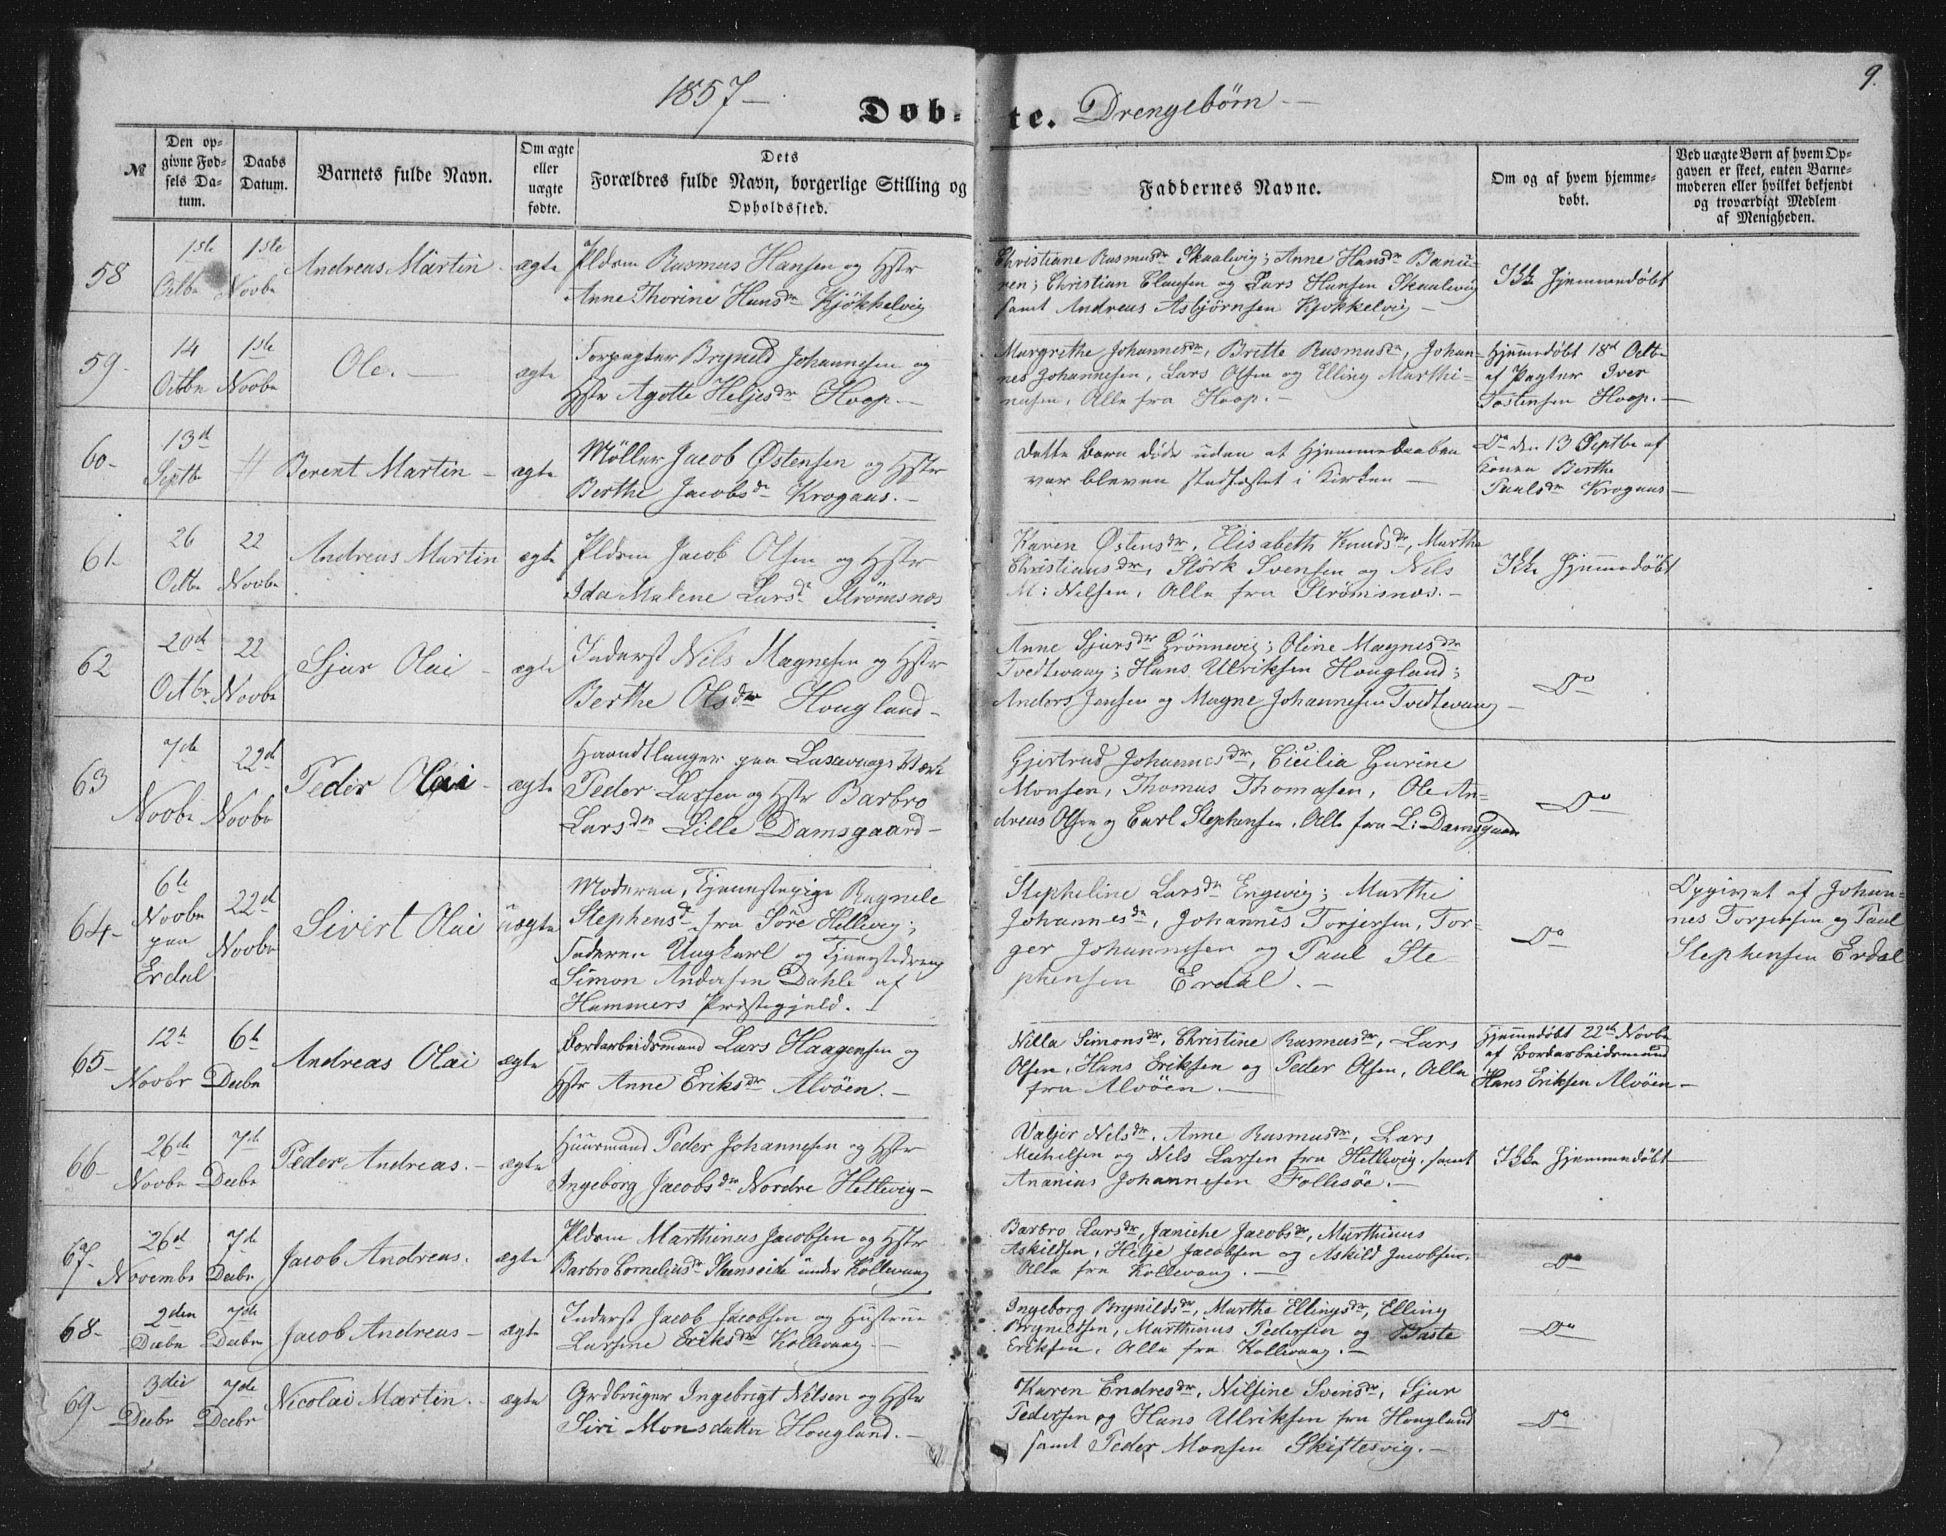 1857-
Døb-te. Drengebørn -
9.
№
Den op-
givne Fød-
sels Da-
tum.
Daabs
Datum.
Barnets fulde Navn.
Om ægte
eller
uægte
fødte.
Dets
Forældres fulde Navn, borgerlige Stilling og
Opholdssted.
Faddernes Navne.
Om og af hvem hjemme-
døbt.
Ved uægte Børn af hvem Op-
gaven er skeet, enten Barne-
moderen eller hvilket bekjendt
og troværdigt Medlem
af Menigheden.
58
1ste
Octbr
1ste
Novbr
Andreas Martin
ægte
Pldsm Rasmus Hansen og Hstr
Anne Thorine Hansdr Kjøkkelvig
Christiane Rasmusdr Skaalvig; Anne Hansdr
Christian Clausen og Lars Hansen Skaalevig
samt Andreas Asbjørnsen Kjøkkelvig -
Ikke Hjemmedøbt
59-
14
Octbr
1ste
Novbr
Ole. -
ægte
Forpagter Bryneld Johannesen og
Hstr Agotte Heljesdr Hoop. -
Margrethe Johannesdr, Britte Rasmusdr, Johan-
nes Johannesen, Lars Olsen og Elling Marthi-
nusen, Alle fra Hoop. -
Hjemmedøbt 18de Octbr
af Pagter Iver
Tostensen Hoop. -
60-
13de
Septbr
//
Berent Martin -
ægte
Møller Jacob Østensen og Hstr
Berthe Jacobsdr Krogaas. -
Dette Barn døde uden at Hjemmedaaben
var bleven stadfæstet i Kirken -
Do den 13 Septbr af
Konen Berthe
Paulsdr Krogaas -
61-
26
Octbr
22
Novbr
Andreas Martin
ægte
Pldsm Jacob Olsen og Hstr
Ida Malene Larsdr Strømsnæs
Karen Østensdr, Elisabeth Knudsdr, Marthe
Christiansdr, Størk Svensen og Nels
M: Nilsen, Alle fra Strømsnæs. -
Ikke Hjemmedøbt
62
20de
Octbr.
22
Novbr
Sjur Olai -
ægte
Inderst Nils Magnesen og Hstr
Berthe Olsdr Hougland -
Anne Sjursdr Grønnevig; Oline Magnesdr
Tvedtevaag; Hans Ulriksen Hougland;
Anders Jensen og Magne Johannesen Tvedtevaag -
Do
63
7de
Novbr
22de
Novbr
Peder Olai -
ægte
Haandtlanger paa Laxevaags Værk
Peder Larsen og Hstr Barbro
Larsdr Lille Damsgaard -
Gjertrud Johannesdr, Cicilia Gurine
Monsen, Thomas Thomasen, Ole An-
dreas Olsen og Carl Stephensen. Alle fra L: Damsgaard
Do
64-
6te
Novbr
paa
Erdal
22de
Novbr
Sivert Olai
uægte
Moderen, Tjenestepige Ragnele
Stephensdr fra Søre Hetlevig;
Faderen Ungkarl og Tjenestedreng
Simon Andersen Dahle af
Hammers Præstegjeld. -
Stepheline Larsdr Engevig; Marthe
Johannesdr, Johannes Torjersen, Tor-
ger Johannesen og Paul Ste-
phensen Erdal. -
Do
Opgivet af Johan-
nes Torjersen og Paul
Stephensen Erdal
65-
12te
Novbr
6te
Decbr
Andreas Olai
ægte
Bordarbeidsmand Lars Haagensen og
Hstr Anne Eriksdr Alvøen. -
Nilla Simonsdr, Christine Rasmusdr, Lars
Olsen, Hans Eriksen og Peder Olsen, Alle
fra Alvøen. -
Hjemmedøbt 22de Novbr
af Bordarbeidsmand
Hans Eriksen Alvøen -
66-
26de
Novbr
7de
Decbr
Peder Andreas. -
ægte
Huusmand Peder Johannesen og Hstr
Ingeborg Jacobsdr Nordre Hetlevig -
Valjer Nelsdr, Anne Rasmusdr, Lars
Michelsen og Nels Larsen fra Hetlevig, samt
Ananias Johannesen Follesøe. -
Ikke Hjemmedøbt -
67-
26de
Novembr
7de
Decbr
Jacob Andreas.
ægte
Pldsm Marthinus Jacobsen og Hstr
Barbro Corneliusdr Steenseide under Kollevaag
Barbro Larsdr, Janiche Jacobsdr, Marthinus
Askildsen, Helje Jacobsen og Askild Jacobsen.
Alle fra Kollevaag. -
Do
68-
2den
Decbr
7de
Decbr
Jacob Andreas -
ægte
Inderst Jacob Jacobsen og Hustrue
Larsine Eriksdr Kollevaag. -
Ingeborg Brynildsdr, Marthe Ellingsdr, Elling
Brynildsen, Marthinus Pedersen og Baste
Eriksen, Alle fra Kollevaag. -
Do
69-
3die
Decbr
7de
Decbr
Nicolai Martin. -
ægte
Grdbruger Ingebrigt Nilsen og Hstr
Siri Monsdatter Hougland. -
Karen Endresdr, Nilsine Svensdr, Sjur
Pedersen og Hans Ulriksen fra Hougland
samt Peder Monsen Skiftesvig. -
Do